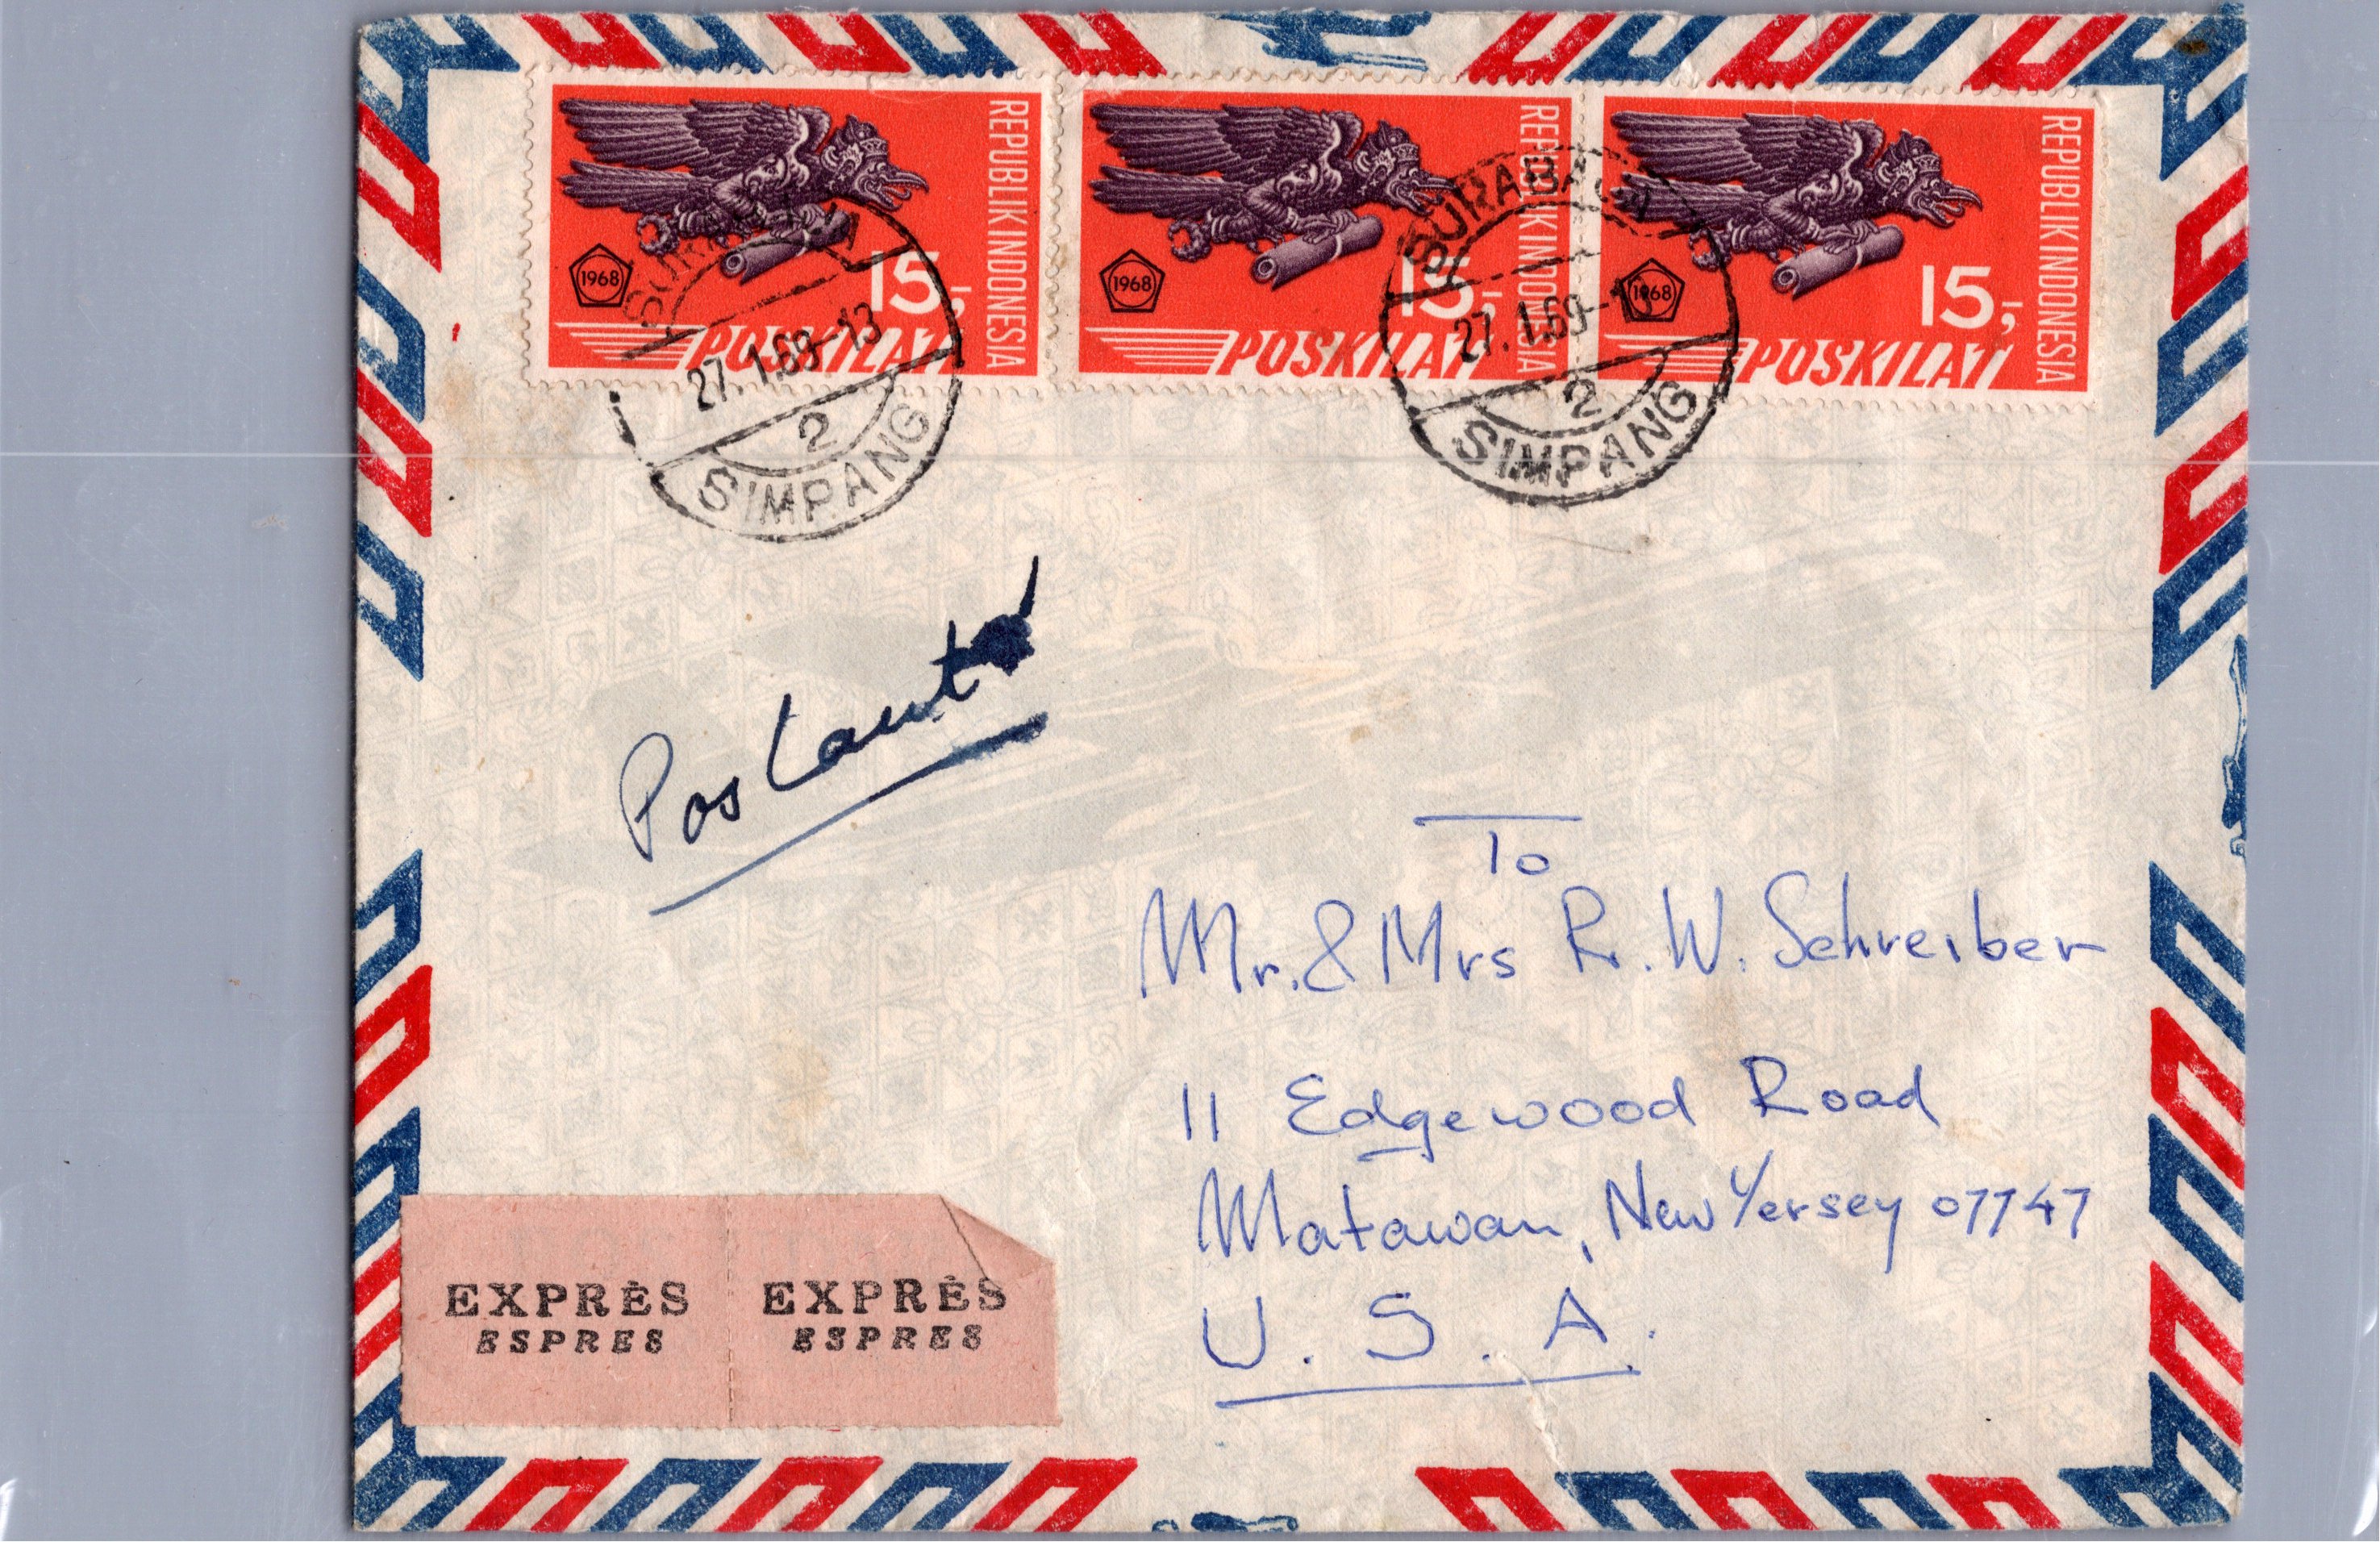 REPUBLIK INDONESIA
1968
15,-
POS KILAT
REPUBLIK INDONESIA
1968
15,-
POS KILAT
REPUBLIK INDONESIA
1968
15,-
POS KILAT
SURABAJA
27.1.69-13
2
SIMPANG
SURABAJA
27.1.69-13
2
SIMPANG
Pos Laut
To
Mr. & Mrs R. W. Schreiber
11 Edgewood Road
Matawan, New Yersey 07747
U. S. A.
EXPRÈS EXPRÈS
ESPRES ESPRES